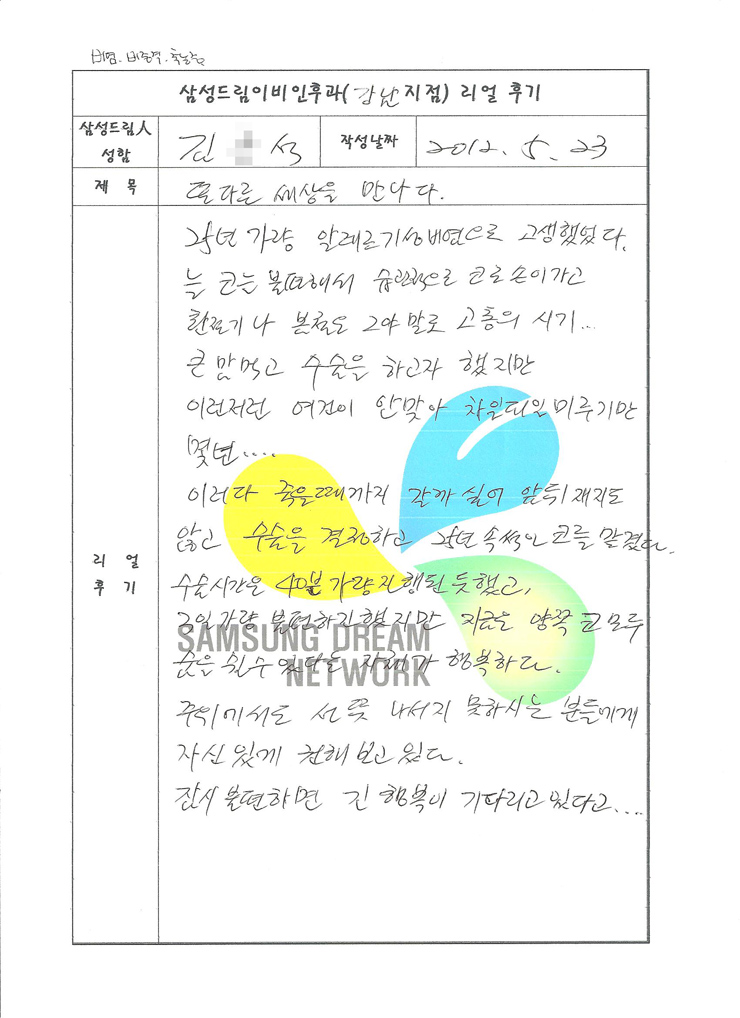 비염. 비중격. 축농증
삼성드림이비인후과(강남지점) 리얼 후기
삼성드림人
성함
김 석
작성날짜
2012. 5. 23
제 목
또다른 세상을 만나다.
25년 가량 알레르기성비염으로 고생했었다.
늘 코는 불편해서 습관적으로 코로 손이가고
환절기나 본철도 그야말로 고통의 시기...
큰 맘먹고 수술을 하고자 했지만
이런저런 여건이 안맞아 차일피일 미루기만
몇년....
이러다 죽을때까지 갈까 싶어 앞뒤 재지도
않고 수술을 결정하고 25년 속썩인 코를 맡겼다.
리 얼
후 기
수술시간은 40분 가량 진행된 듯했고,
2일가량 불편하긴했지만 지금은 양쪽 코 모두
숨을 쉴수 있다는 자체가 행복하다.
SAMSUNG DREAM
NETWORK
주위에서도 선뜻 나서지 못하시는 분들에게
자신있게 권해보고 있다.
잠시 불편하면 긴 행복이 기다리고 있다고....